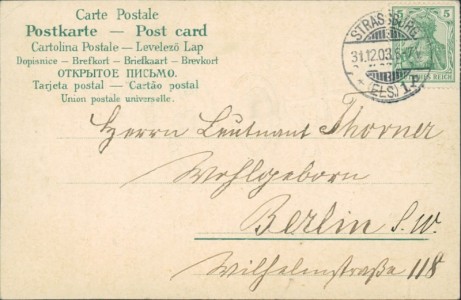 Carte Postale
Postkarte — Post card
Cartolina Postale — Levelező Lap
Dopisnice — Brefkort — Briefkaart — Brevkort
ОТКРЫТОЕ ПИСЬМО.
Tarjeta postal — Cartão postal
Union postale universelle.
5 5
STRASSBURG
31.12.03.
(ELS) 1.
REICH
Herrn Leutnant Thorner
Wohlgeboren
Berlin S.W.
Wilhelmstraße 118